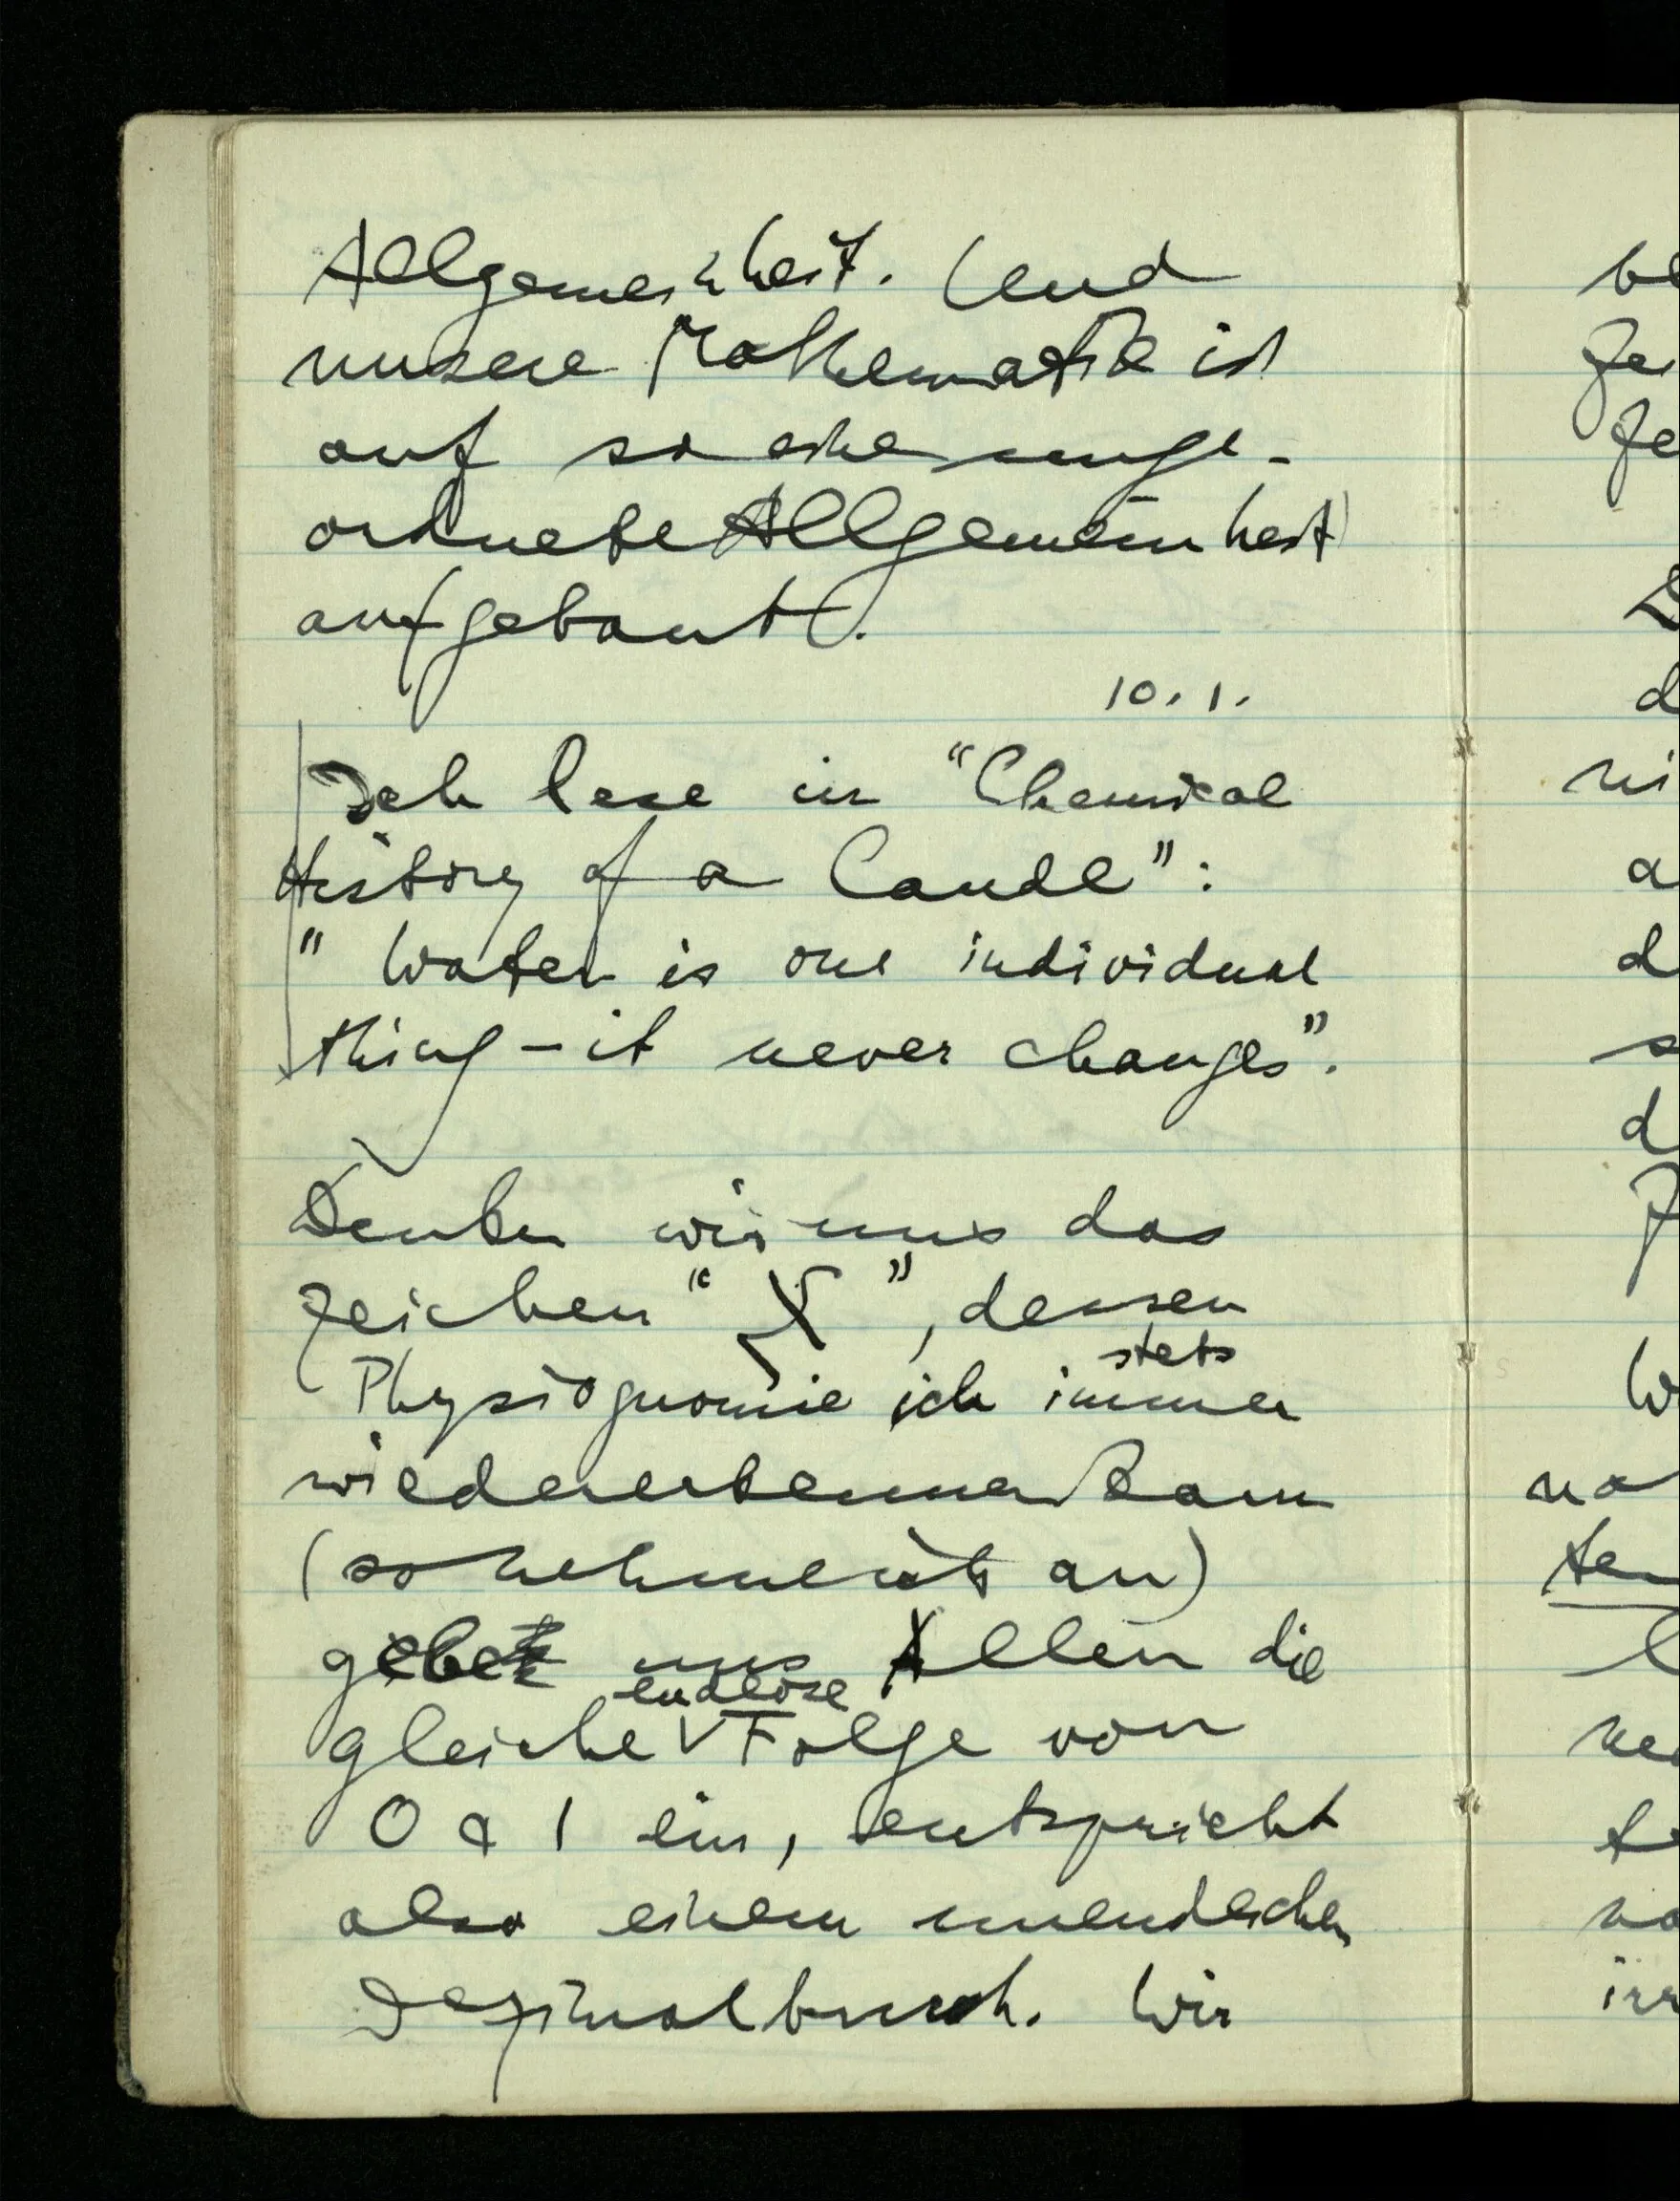 Allgemeinheit. Und
unsere Mathematik ist
auf so eine unge-
ordnete Allgemeinheit
aufgebaut.
10. 1.
Ich lese in "Chemical
History of a Candl":
" Water is one individual
thing – it never changes".
Denken wir uns das
Zeichen " X ", dessen
stets
Physiognomie ich immer
wiedererkennen kann
(so nehme ich an)
uns Allen die
endlose
gleiche Folge von
0 & 1 ein, entspricht
also einem unendlichen
Dezimalbruch. Wir